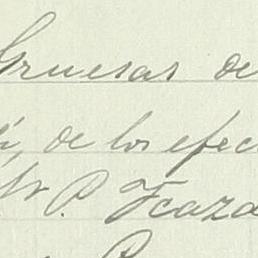 Gruesas de
de los efec
Sr P. Fcaza